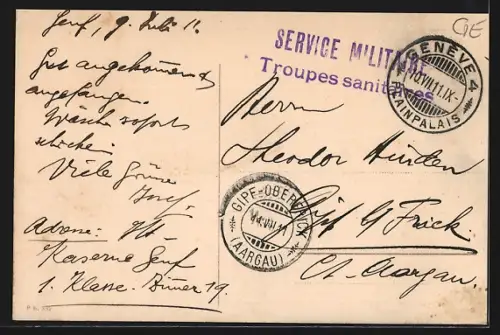 Genf, 9. Juli 11.
Gut angekommen &
angefangen.
Wäsche sofort
schicken.
Viele Grüsse
Josef.
Adresse:
Kaserne Genf
1. Klasse. Zimmer 19.
GE
SERVICE MILITAIRE
Troupes sanitaires
GENÈVE 4
10.VII.11.IX-
PLAINPALAIS
Herrn
Theodor
Gipf b/ Frick.
Ct. Aargau.
GIPF-OBERFRICK
VII.11
(AARGAU)